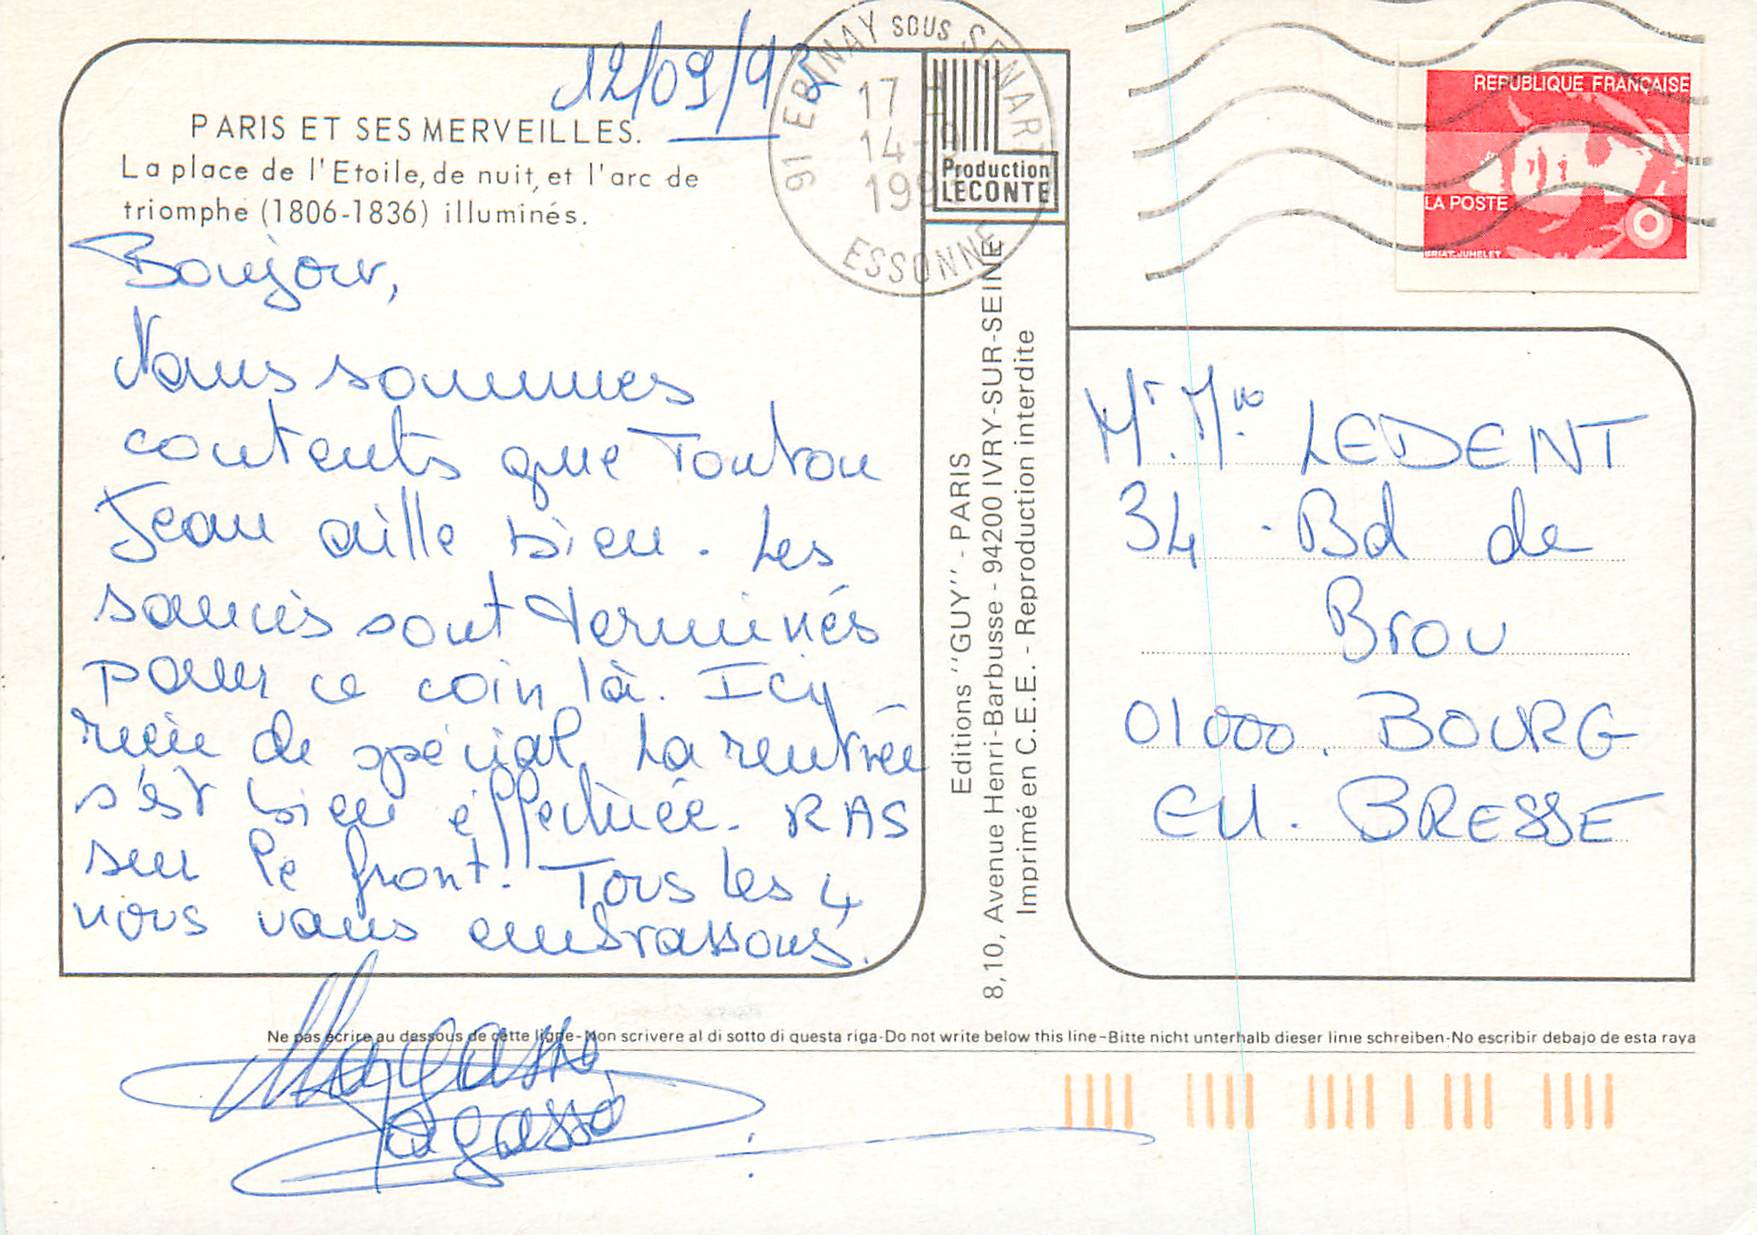 12/09/93
PARIS ET SES MERVEILLES.
La place de l'Etoile, de nuit, et l'arc de
triomphe (1806-1836) illuminés.
Bonjour,
Nous sommes
contents que Tonton
Jean aille bien. Les
soucis sont terminés
pour ce coin là. Icy
rien de spécial. La rentrée
s'est bien effectuée. RAS
sur le front! Tous les 4
nous vous embrassons.
91 EPINAY SOUS SENART
17 H
14-9
199
ESSONNE
Production
LECONTE
Editions "GUY" - PARIS
8,10, Avenue Henri-Barbusse - 94200 IVRY-SUR-SEINE
Imprimé en C.E.E. - Reproduction interdite
REPUBLIQUE FRANÇAISE
LA POSTE
BRIAT-JUMELET
Mr. Mme LEDENT
34 . Bd de
Brou
01000. BOURG
EN. BRESSE
Ne pas écrire au dessous de cette ligne-Non scrivere al di sotto di questa riga-Do not write below this line-Bitte nicht unterhalb dieser linie schreiben-No escribir debajo de esta raya